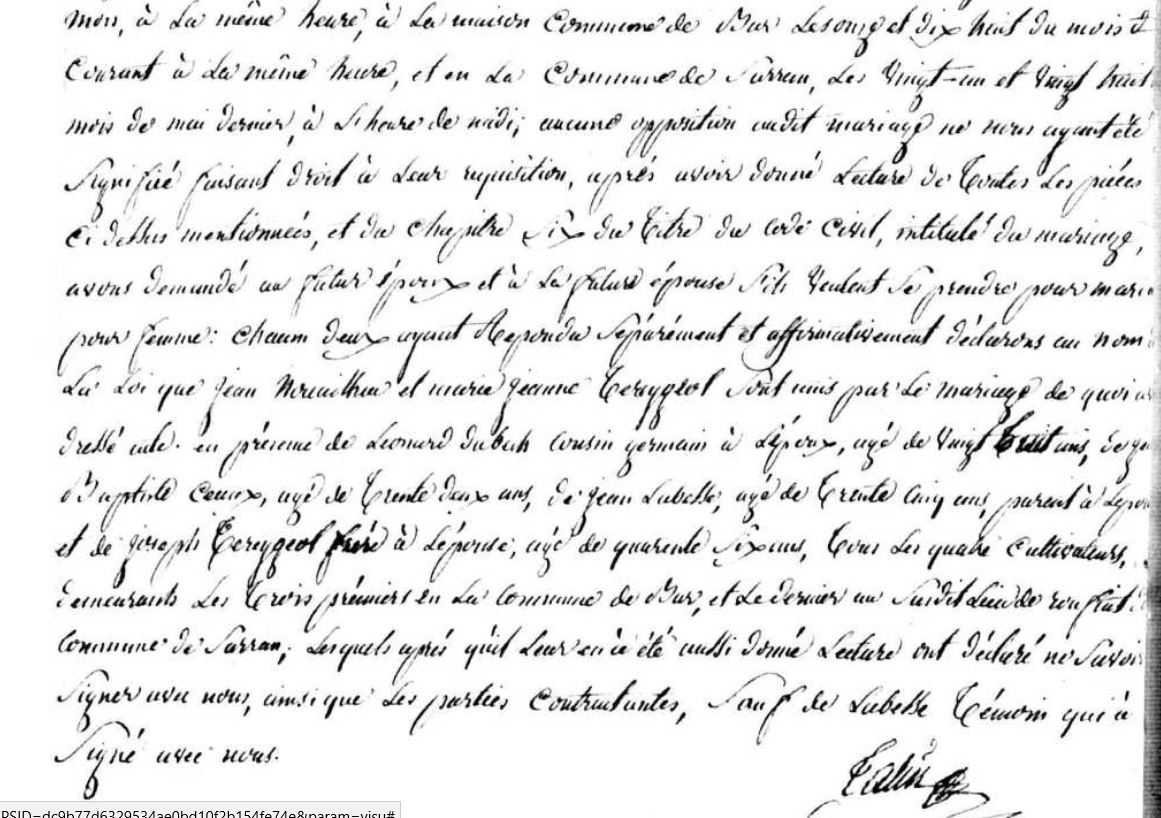 mon, à La même heure, à La maison Commune de Bar Les onze et dix huit du mois
Courant à La même heure, et en La Commune de Sarran, Les Vingt-un et Vingt huit
mois de mai dernier, à L'heure de midi; aucune opposition audit mariage ne nous ayant été
Signifié faisant droit à Leur requisition, après avoir donné Lecture de Toutes Les pièces
Ci dessus mentionnées, et du chapitre Six du Titre du code Civil, intitulé du mariage,
avons demandé au futur époux et à La future épouse S'ils Veulent Se prendre pour mari
pour femme: chacun deux ayant Repondu Séparément et affirmativement déclarons au nom
La Loi que Jean et marie Jeanne Tereygeol Sont unis par Le mariage de quoi
dressé acte. en présence de Leonard cousin germain à L'époux, agé de Vingt huit ans, de
Baptiste Ceaux, agé de Trente deux ans, de Jean Labesse, agé de Trente Cinq ans, parent à
et de Joseph Tereygeol frère à L'épouse, agé de quarente Six ans, Tous Les quatre Cultivateurs,
demeurants Les Trois prémiers en La commune de Bar, et Le dernier au Susdit Lieu de
commune de Sarran; Lesquels aprés qu'il Leur en à été aussi donné Lecture ont déclaré ne Savoir
Signer avec nous, ainsi que Les parties Contractantes, Sauf de Labesse Témoin qui à
Signé avec nous.
PSID=dc9b77d6329534ae0bd10f2b154fe74e&param=visu#